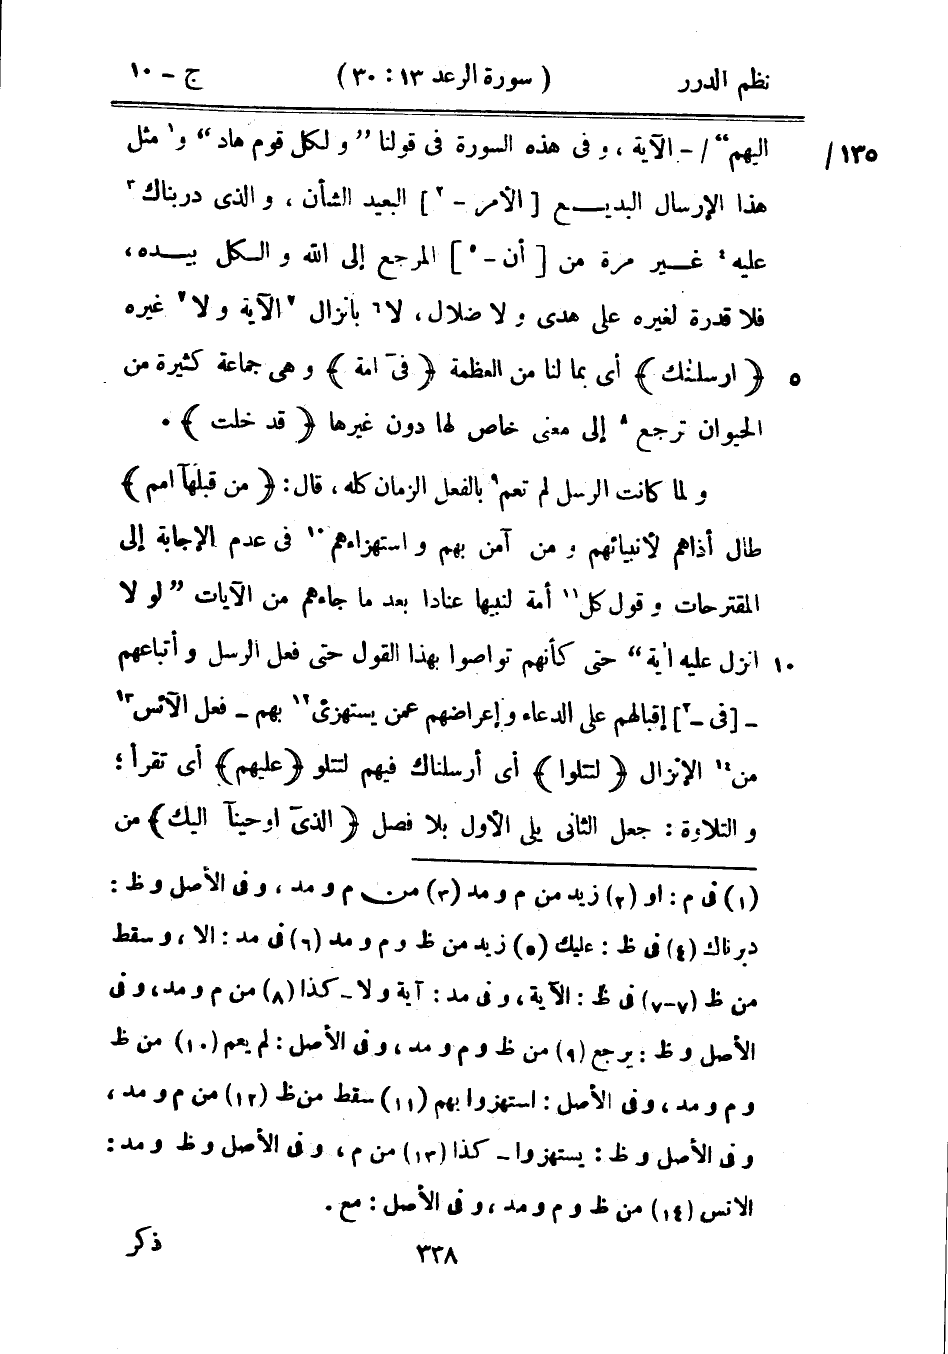 نظم الدرر ( سورة الرعد ١٣ : ٣٠ ) ج - ١٠
اليهم“ / - الآية ، و فى هذه السورة فى قولنا ” و لكل قوم هاد“ و١ مثل ١٣٥/
هذا الإرسال البديع [ الأمر - ٢ ] البعيد الشأن ، و الذى دربناك ٣
عليه ٤ غير مرة من [ أن - ٥ ] المرجع إلى الله و الكل بيده ،
فلا قدرة لغيره على هدى و لا ضلال ، لا ٦ بانزال ٧ الآية و لا ٧ غيره
﴿ ارسلنٰك ﴾ أى بما لنا من العظمة ﴿ فىٓ امة ﴾ و هى جماعة كثيرة من ٥
الحيوان ترجع ٨ إلى معنى خاص لها دون غيرها ﴿ قد خلت ﴾ .
و لما كانت الرسل لم تعم ٩ بالفعل الزمان كله ، قال : ﴿ من قبلهآ امم ﴾
طال أذاهم لأنبيائهم و من آمن بهم و استهزاءهم ١٠ فى عدم الإجابة إلى
المقترحات و قول كل ١١ أمة لنبيها عنادا بعد ما جاءهم من الآيات ” لو لا
انزل عليه اٰية “ حتى كأنهم تواصوا بهذا القول حتى فعل الرسل و أتباعهم ١٠
- [ فى - ٢ ] إقبالهم على الدعاء و إعراضهم عمن يستهزئ ١٢ بهم - فعل الآئس ١٣
من ١٤ الإنزال ﴿ لتتلوا ﴾ أى أرسلناك فيهم لتتلو ﴿ عليهم ﴾ أى تقرأ ؛
و التلاوة : جعل الثانى يلى الأول بلا فصل ﴿ الذىٓ اوحينآ اليك ﴾ من
(١) فى م : او (٢) زيد من م و مد (٣) من م و مد ، و فى الأصل و ظ :
دبرناك (٤) فى ظ : عليك (٥) زيد من ظ و م و مد (٦) فى مد : الا ، و سقط
من ظ (٧-٧) فى ظ : الآية ، و فى مد : آية و لا - كذا (٨) من م و مد ، و فى
الأصل و ظ : يرجع (٩) من ظ و م و مد ، و فى الأصل : لم يعم (١٠) من ظ
و م و مد ، و فى الأصل : استهزوا بهم (١١) سقط من ظ (١٢) من م و مد ،
و فى الأصل و ظ : يستهزوا - كذا (١٣) من م ، و فى الأصل و ظ و مد :
الانس (١٤) من ظ و م و مد ، و فى الأصل : مع .
٣٣٨ ذكر